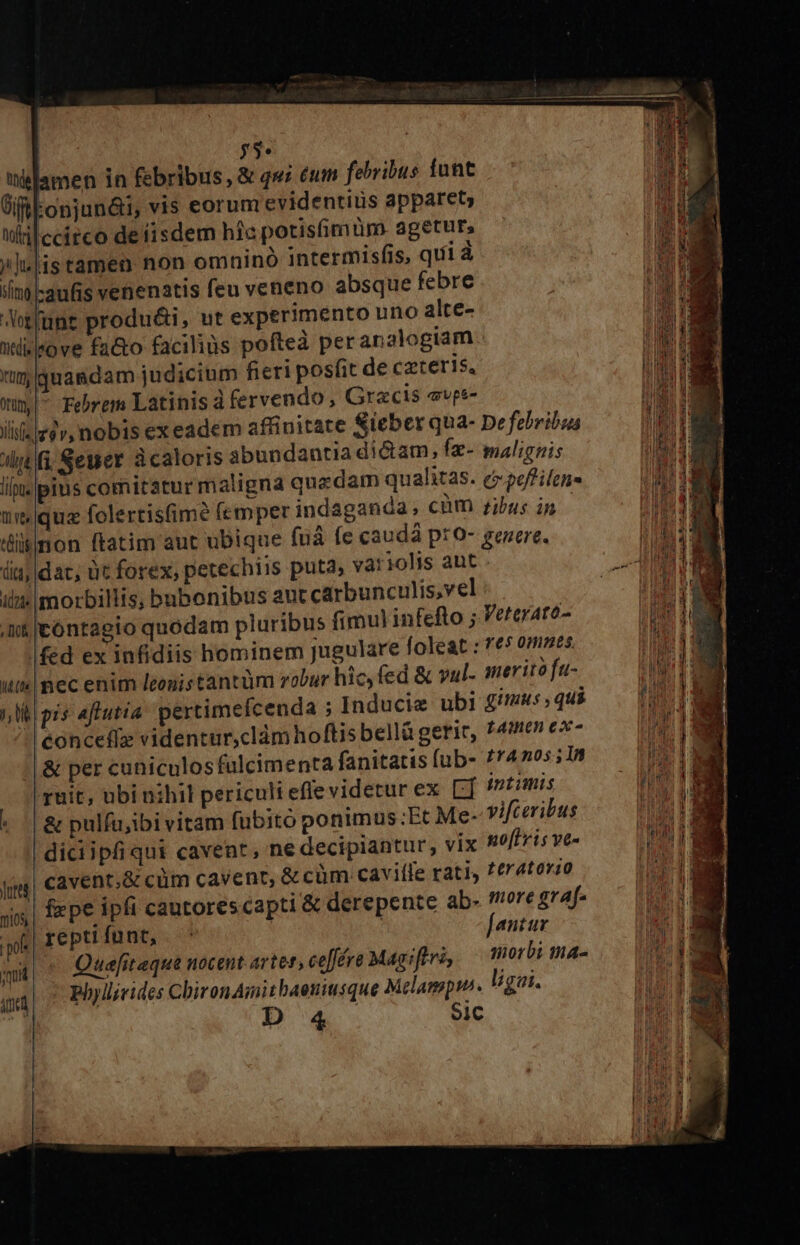 55.
lamen in febribus, & qui cum febribus ſunt
conjuncti, vis eorum evidentiùs apparet,
iccirco de iisdem hîc potisſimùm agetur,
is tamen non omninò intermisſis, qui à
cauſis venenatis ſeu veneno absque febre
ſunt producti, ut experimento uno alte-
rove facto faciliùs poſteà per analogiam
quandam judicium fieri posſit de cæteris.
Febrem Latinis à fervendo, Græcis πυρε-
τὸν, nobis ex eadem affinitate Fieber qua-
ſi Feuer à caloris abundantia dictam, ſæ-
pius comitatur maligna quædam qualitas.
quæ ſolertisſimè ſemper indaganda, cùm
non ſtatim aut ubique ſuâ ſe caudâ pro-
dat, ùt ſorex, petechiis puta, variolis aut
morbillis, bubonibus aut carbunculis, vel
contagio quodam pluribus ſimul infeſto;
ſed ex inſidiis hominem jugulare ſoleat:
nec enim leonis tantùm robur hîc, ſed & vul-
pis aſtutia pertimeſcenda; Induciæ ubi
conceſſæ videntur, clàm hoſtis bellũ gerit,
& per cuniculos fulcimenta ſanitatis ſub-
ruit, ubi nihil periculi eſſe videtur ex
& pulſu, ibi vitam ſubitò ponimus: Et Me-
dici ipſi qui cavent, ne decipiantur, vix
cavent, & cùm cavent, & cùm caviſſe rati,
ſæpe ipſi cautores capti & derepente ab-
repti ſunt,
Quæſitæque nocent artes, ceſſére Magiſtri,
Phyllirides Chiron Amithaoniusque Melampus.
De febribus
malignis
& peſtilen-
tibus in
genere.
Veterato-
res omnes
meritò fu-
gimus, quà
tamen ex-
tra nos; In
intimis
viſceribus
noſtris ve-
teratorio
more graſ-
ſantur
morbi ma-
ligni.
D 4
Sic